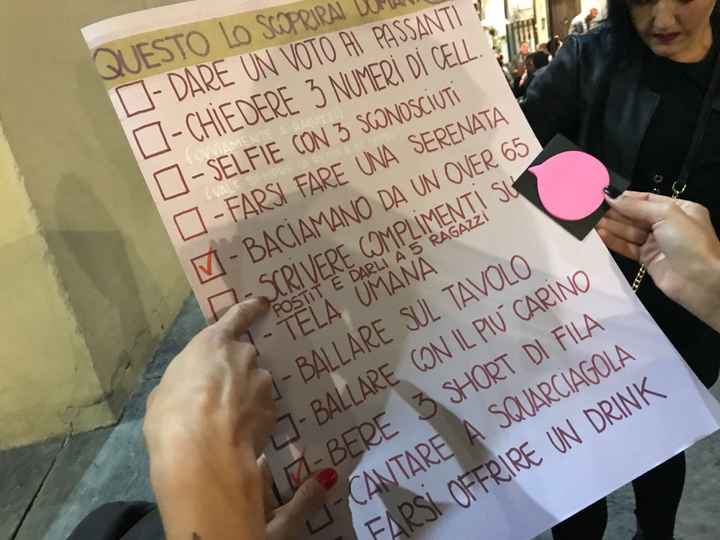 QUESTO LO SCOPRIRAI DOMANI
- DARE UN VOTO AI PASSANTI
- CHIEDERE 3 NUMERI DI CELL.
- SELFIE CON 3 SCONOSCIUTI
- FARSI FARE UNA SERENATA
- BACIAMANO DA UN OVER 65
- SCRIVERE COMPLIMENTI SU
POSTIT E DARLI A 5 RAGAZZI
- TELA UMANA
- BALLARE SUL TAVOLO
- BALLARE CON IL PIÙ CARINO
- BERE 3 SHORT DI FILA
- CANTARE A SQUARCIAGOLA
FARSI OFFRIRE UN DRINK